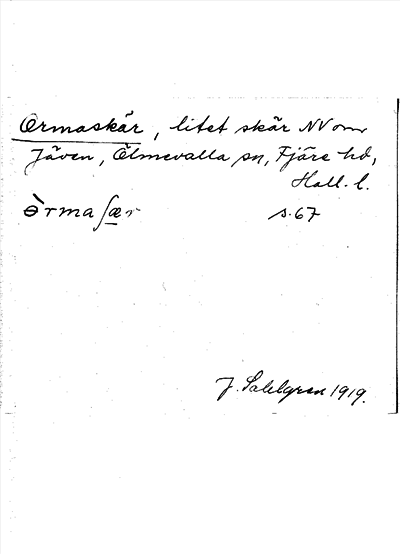 Ormaskär, litet skär NV om
Jäven, Ölmevalla sn, Fjäre hd,
Hall. l.
ɵ̀rmaʃær s. 67
J. Sahlgren 1919.